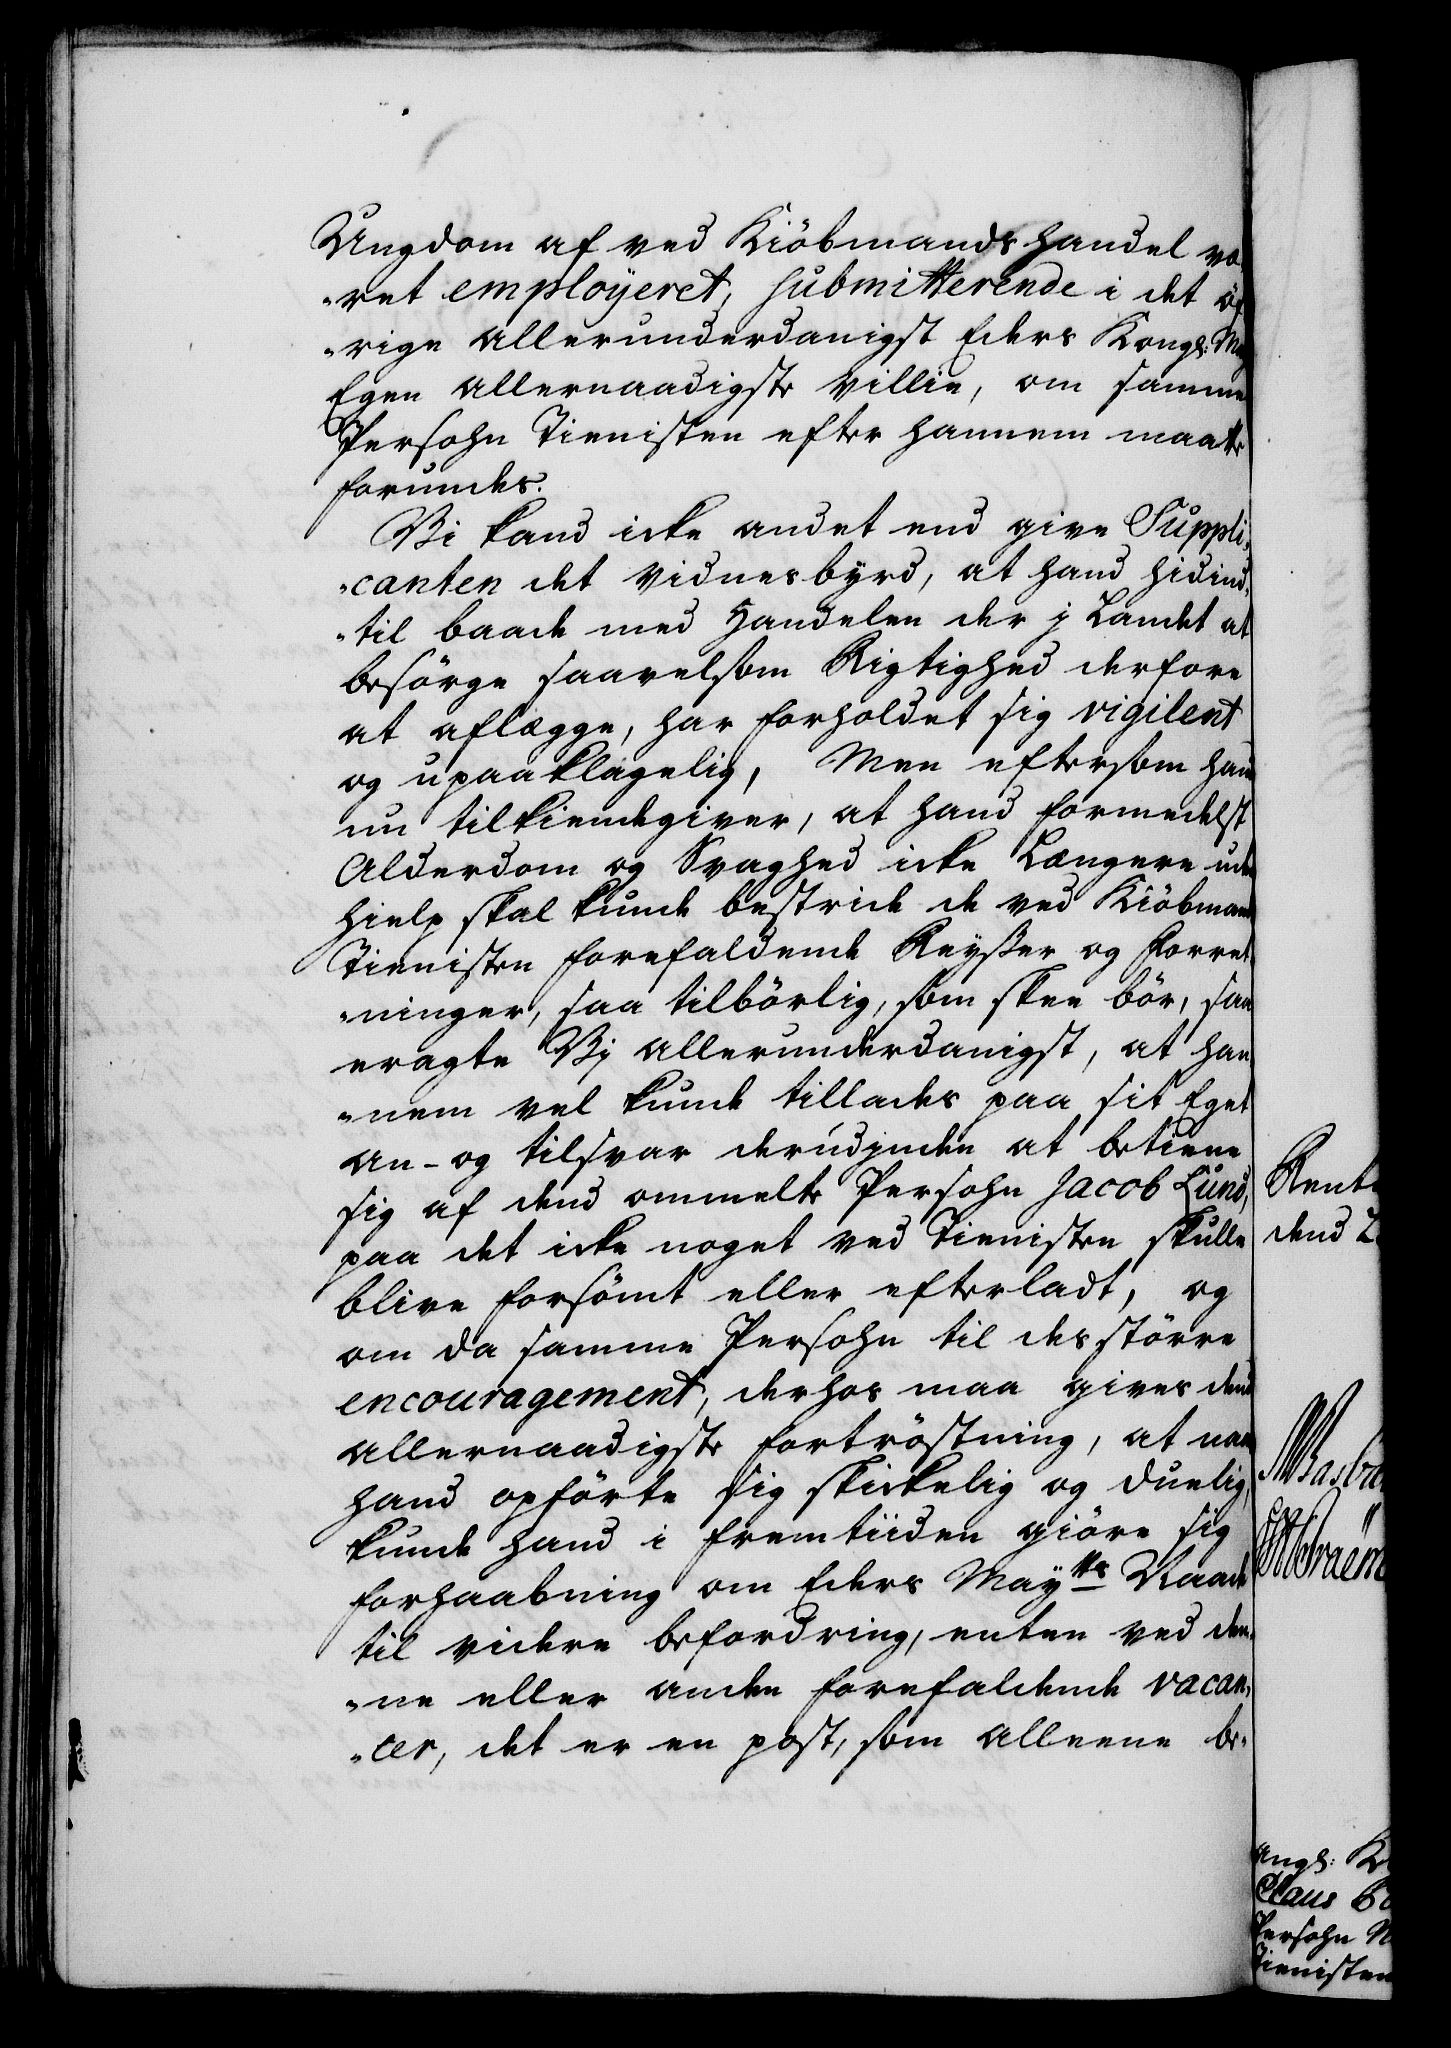 Ungdom af ved Kiöbmands handel væ-
"ret employeret, submitterende i det öf
"rige allerunderdanigst Eders Kongl: May
Egen allernaadigste villie, om samme
Persohn Tienisten efter hannem maatte
forundes.
Vi kand icke andet end give Suppli-
"canten det vidnesbyrd, at hand hidind-
"til baade med Handelen der j Landet at
besörge saavelsom Rigtighed derfore
at aflægge, har forholdet sig vigilent
og upaaklagelig, Men eftersom hand
nu tilkiendegiver, at hand formedelst
Alderdom og Svaghed icke Længere uden
hielp skal kunde bestride de ved Kiöbmands
Tienisten forefaldende Reyßer og Forret
"ninger, saa tilbörlig, som skee bör, saa
eragte Vj allerunderdanigst, at han
"nem vel kunde tillades paa sit Eget
an- og tilsvar derudjnden at betiene
sig af dend ommelte Persohn Jacob Lund,
paa det icke noget ved Tienisten skulle
blive forsömt eller efterladt, og
om da samme Persohn til des större
encouragement, derhos maa gives dend
allernaadigste fortröstning, at naar
hand opförte sig skickelig og duelig,
kunde hand i fremtiiden giöre sig
forhaabning om Eders Maytts Naade
til videre befordring, enten ved den-
"ne eller anden forefaldende vacan-
"cer, det er en post, som alleene be-
Rent
dend 2
angl: K
Claus
Persohn
Tienisten